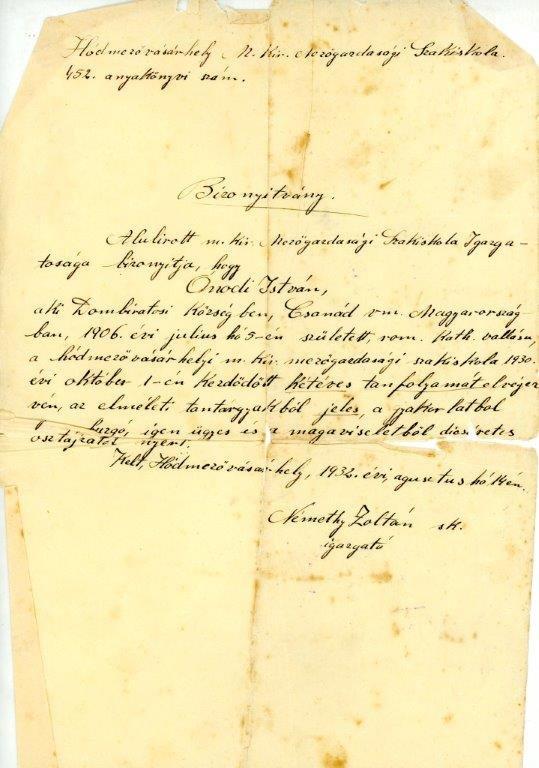 Hódmezővásárhely M. Kir. Mezőgazdasági Szakiskola.
452. anyakönyvi szám.
Bizonyitvány.
Alulirott m. kir. Mezőgazdasági Szakiskola Igazga-
tosága bizonyitja, hogy
Ónodi István,
aki Dombiratosi Községben, Csanád vm. Magyarország
ban, 1906. évi julius hó 5-én született, rom. kath. vallásu,
a hódmezővásárhelyi m. kir. mezőgazdasági szakiskola 1930.
évi október 1-én kezdödött kétéves tanfolyamát elvégez
vén, az elméleti tantárgyakból jeles, a gyakorlatbol
szorgó, igen ügyes és a magaviseletből dicséretes
osztájzatot nyert.
Kelt, Hódmezővásárhely, 1932. évi, agusztus hó 14 én.
Némethy Zoltán sk.
igazgató